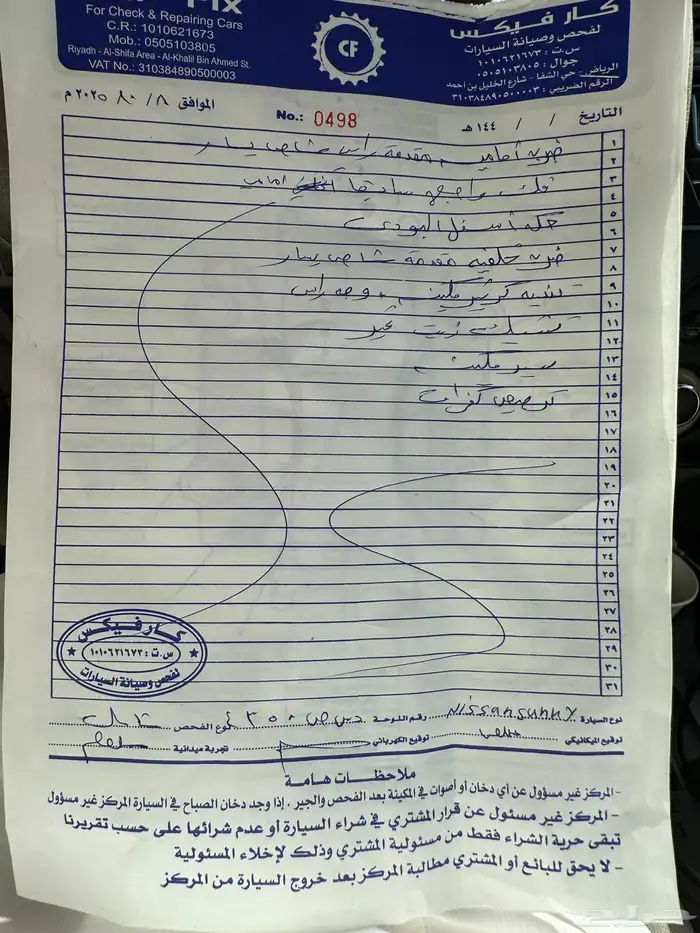 Fix
For Check & Repairing Cars
C.R.: 1010621673
Mob.: 0505103805
Riyadh - Al-Shifa Area - Al-Khalil Bin Ahmed St.
VAT No.: 310384890500003
CF
كار فيكس
لفحص وصيانة السيارات
س.ت : ١٠١٠٦٢١٦٧٣
جوال : ٠٥٠٥١٠٣٨٠٥
الرياض - حي الشفا - شارع الخليل بن أحمد
الرقم الضريبي : ٣١٠٣٨٤٨٩٠٥٠٠٠٠٣
التاريخ / / ١٤٤ هـ
No.: 0498
الموافق ٨ / ١٠ / ٢٠٢٥ م
١
ضربه أماميه مقدمة راس شاص يسار
٢
٣
فك واجهه سابقا امامي
٤
٥
حكه أسفل البودي
٦
٧
ضربه خلفيه مقدمة شاص يسار
٨
٩
تنديه كرتير مكينه + وجه راس
١٠
١١
زيت قير
١٢
١٣
سير مكينه
١٤
١٥
ترصيص كفرات
١٦
١٧
١٨
١٩
٢٠
٢١
٢٢
٢٣
٢٤
٢٥
٢٦
٢٧
٢٨
٢٩
٣٠
٣١
كار فيكس
س.ت : ١٠١٠٦٢١٦٧٣
لفحص وصيانة السيارات
نوع السيارة Nissan sunny رقم اللوحة نوع الفحص
توقيع الميكانيكي توقيع الكهربائي تجربة ميدانية
ملاحظات هامة
- المركز غير مسؤول عن أي دخان أو أصوات في المكينة بعد الفحص والجير . إذا وجد دخان الصباح في السيارة المركز غير مسؤول
- المركز غير مسئول عن قرار المشتري في شراء السيارة أو عدم شرائها على حسب تقريرنا
تبقى حرية الشراء فقط من مسئولية المشتري وذلك لإخلاء المسئولية
- لا يحق للبائع أو المشتري مطالبة المركز بعد خروج السيارة من المركز
حراج